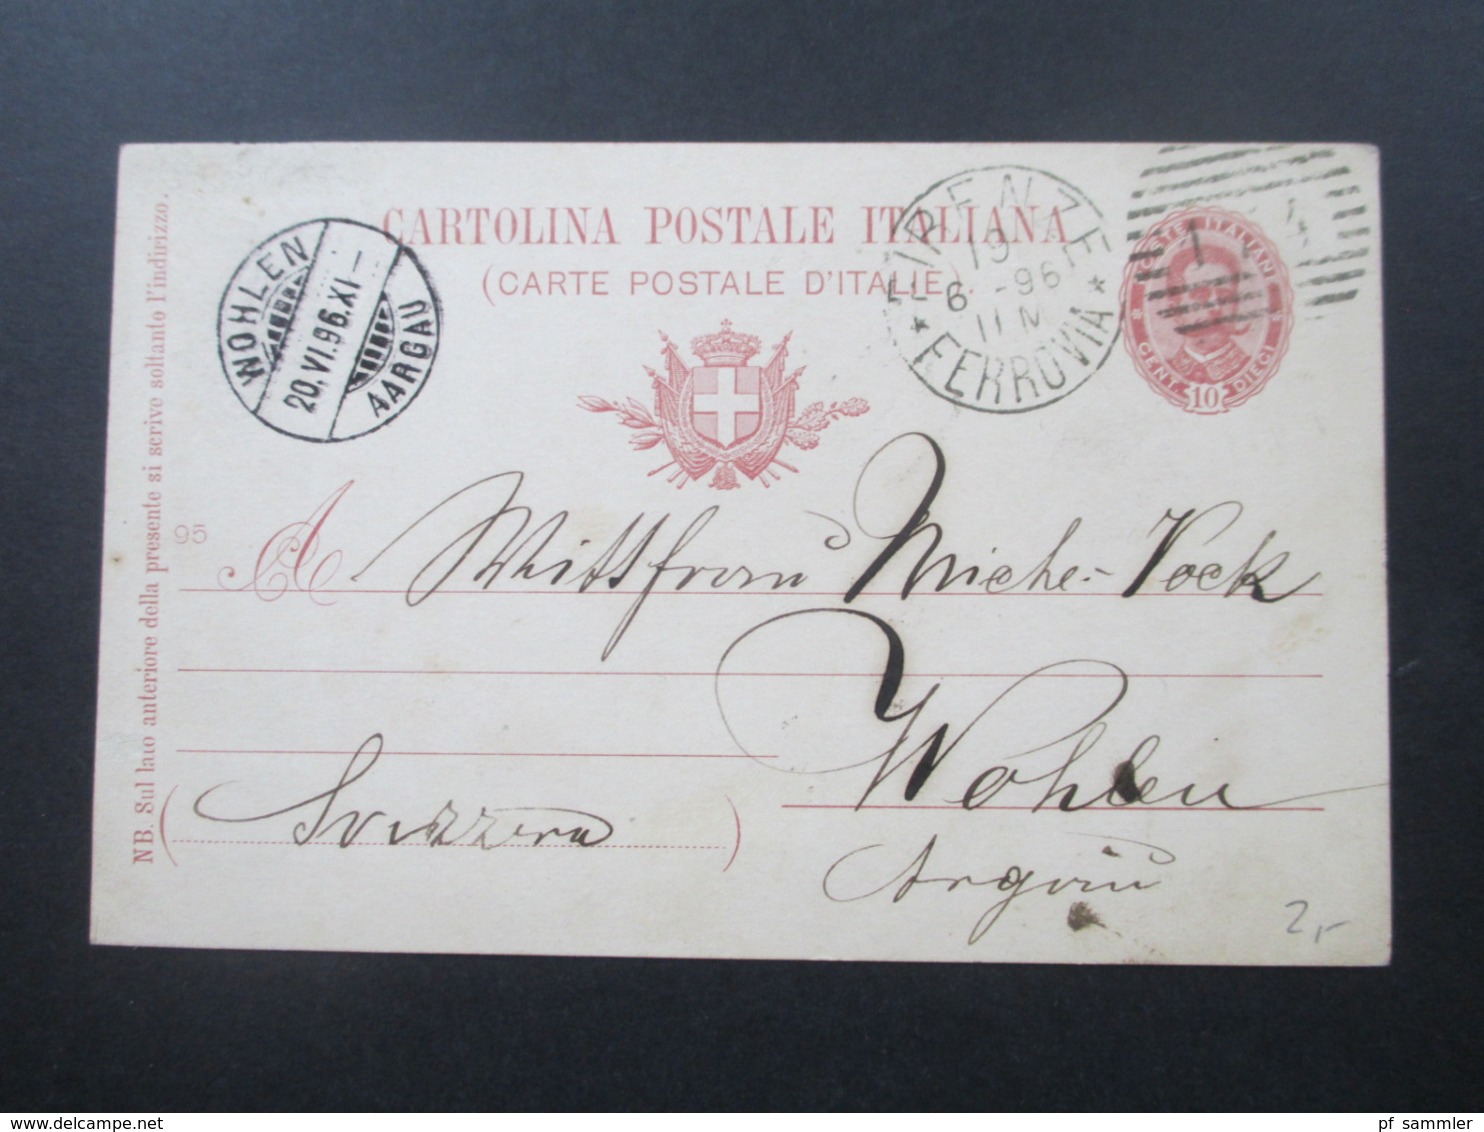 CARTOLINA POSTALE ITALIANA
(CARTE POSTALE D'ITALIE)
WOHLEN
20.VI.96.XI-
AARGAU
FIRENZE
19
6 -96
11 M
* FERROVIA *
POSTE ITALIANE
CENT. 10 DIECI
NB. Sul lato anteriore della presente si scrive soltanto l'indirizzo.
95
A Wittfrau Miche- Vock
Wohlen
(Svizzera)
Argau
2,-
pf sammler